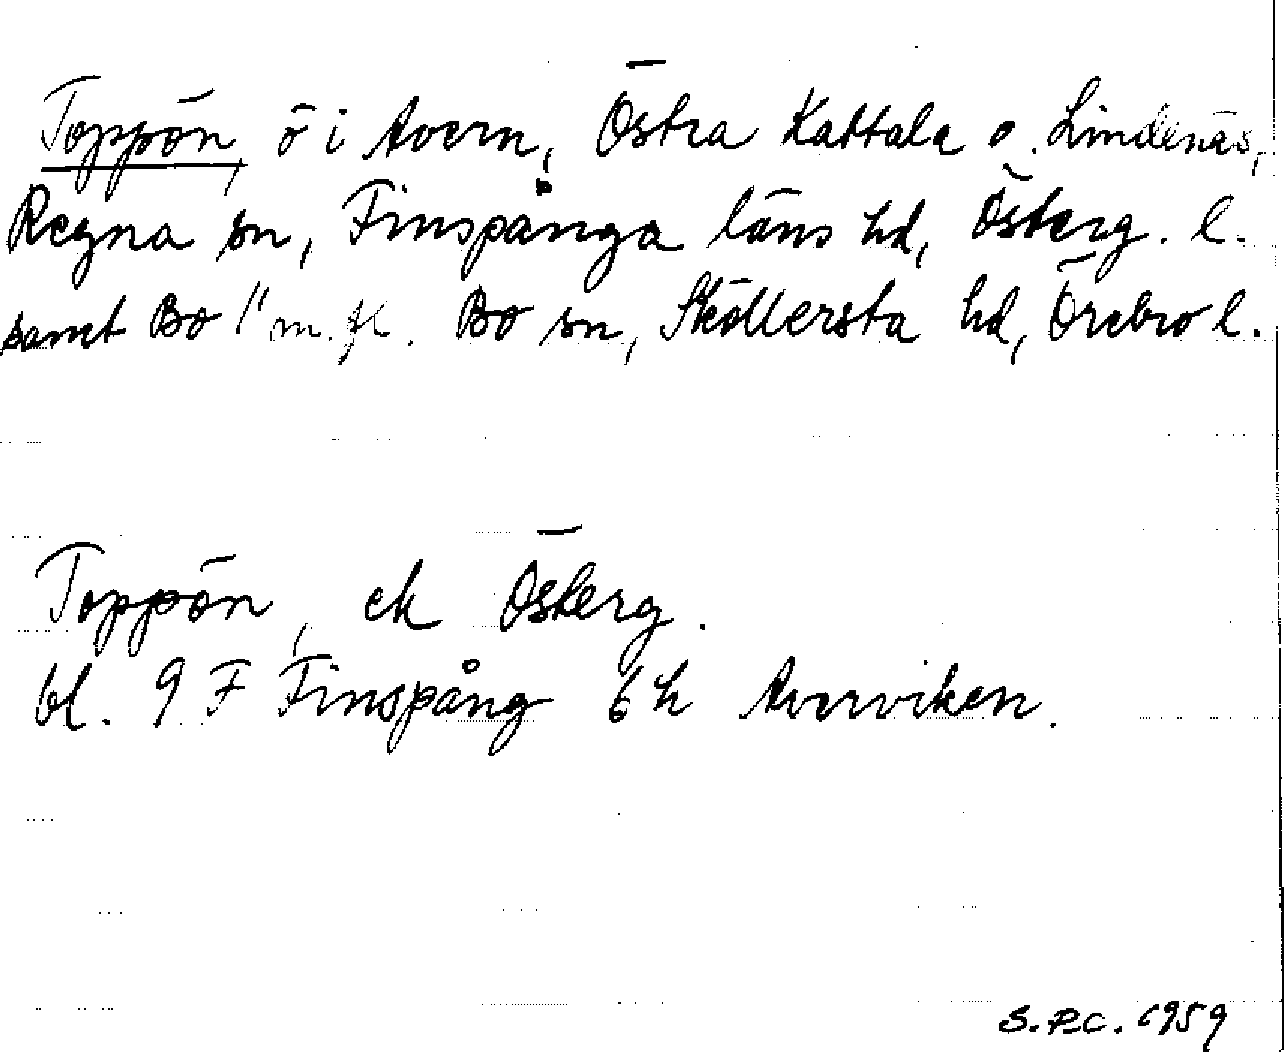 Toppön, ö i Avern, Östra Kattala o. Lindenäs,
Regna sn, Finspånga läns hd, Österg. l.
samt Bo 1⁴ m. fl. Bo sn, Sköllersta hd, Örebro l.
Toppön, ek Österg.
bl. 9 F Finspång 6 h Avernviken.
S.P.C. 1959